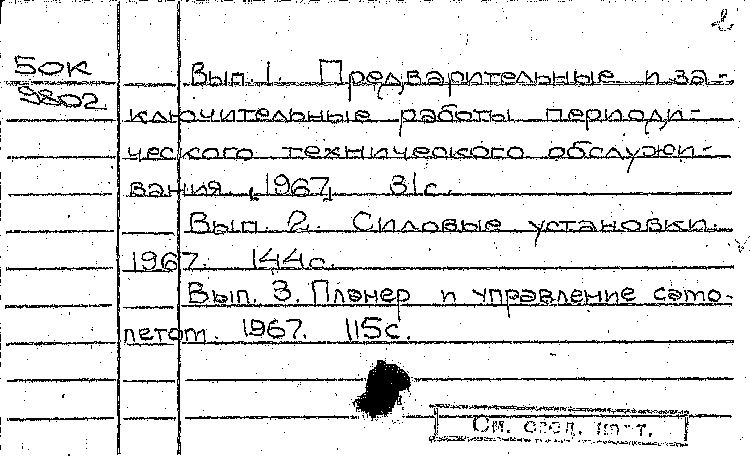 2
БОК Вып. 1. Предварительные и за-
9802 ключительные работы периоди-
ческого технического обслужи-
вания. [1967] 81с.
Вып. 2. Силовые установки.
1967. 144с.
Вып. 3. Планер и управление само-
летом. 1967. 115с.
См. след. карт.